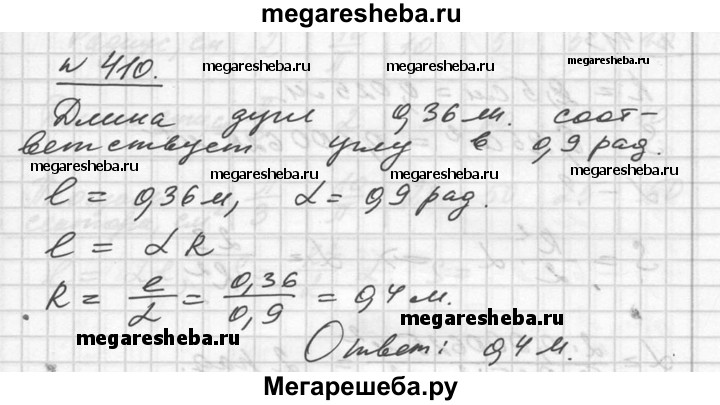 megaresheba.ru
N 410.
megaresheba.ru megaresheba.ru megaresheba.ru
Длина дуги 0,36 м. соот-
ветствует углу в 0,9 рад.
megaresheba.ru megaresheba.ru megaresheba.ru
l = 0,36 м, α = 0,9 рад.
l = α R
R = l/α = 0,36/0,9 = 0,4 м.
megaresheba.ru megaresheba.ru
Ответ: 0,4 м.
Мегарешеба.ру